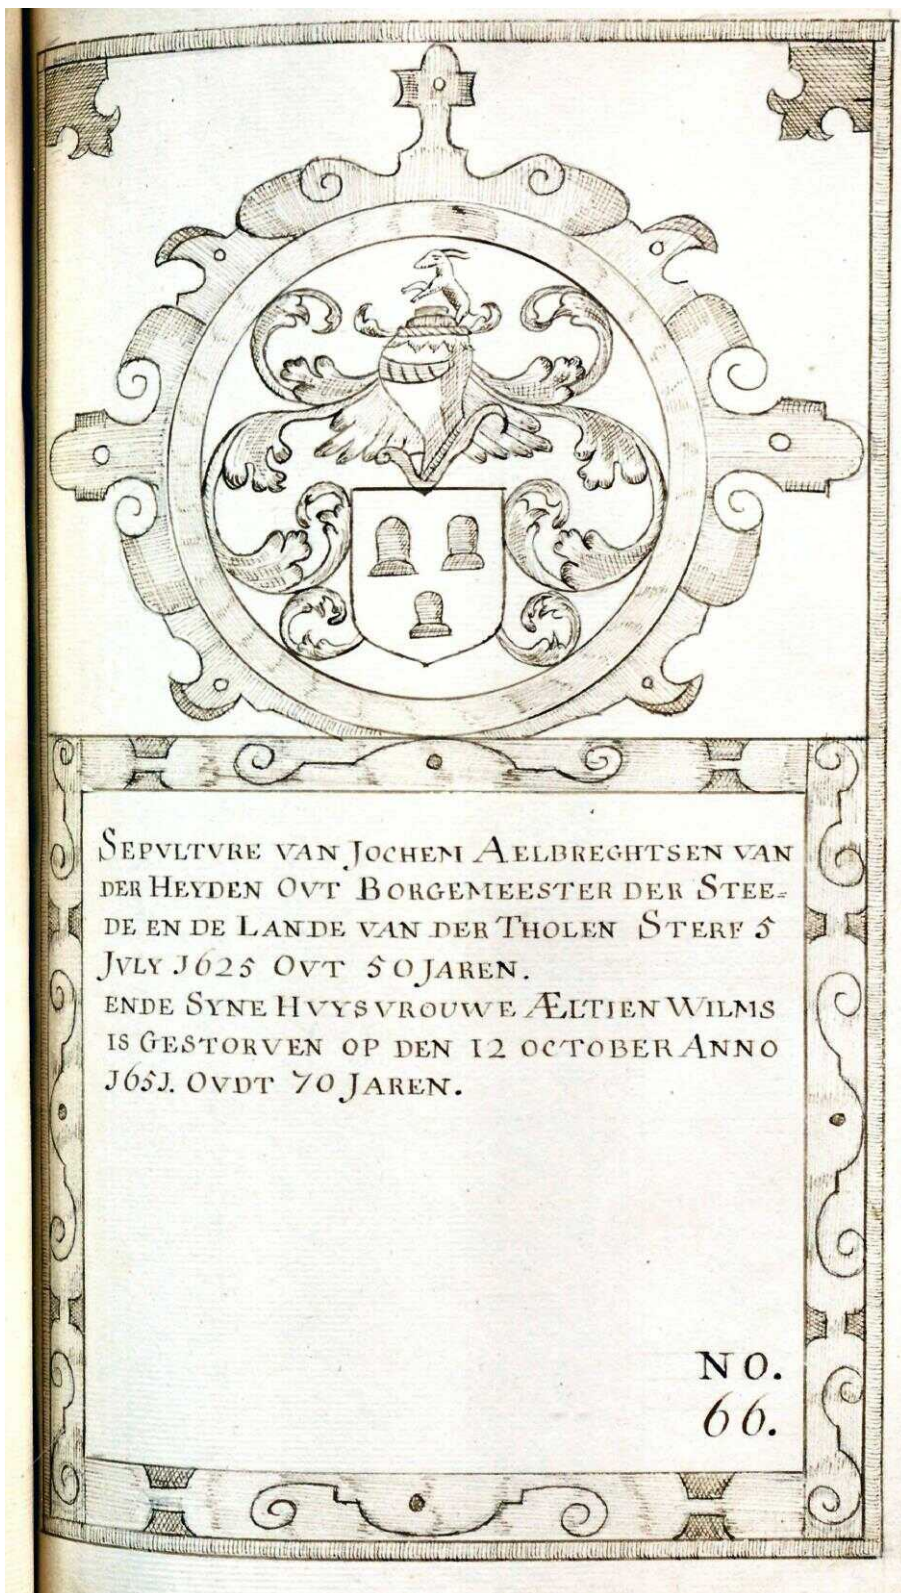 SEPVLTVRE VAN JOCHEM AELBREGHTSEN VAN
DER HEYDEN OVT BORGEMEESTER DER STEE=
DE EN DE LANDE VAN DER THOLEN STERF 5
JVLY 1625 OVT 50 JAREN.
ENDE SYNE HVYSVROUWE ÆLTIEN WILMS
IS GESTORVEN OP DEN 12 OCTOBER ANNO
1651. OVDT 70 JAREN.
NO.
66.